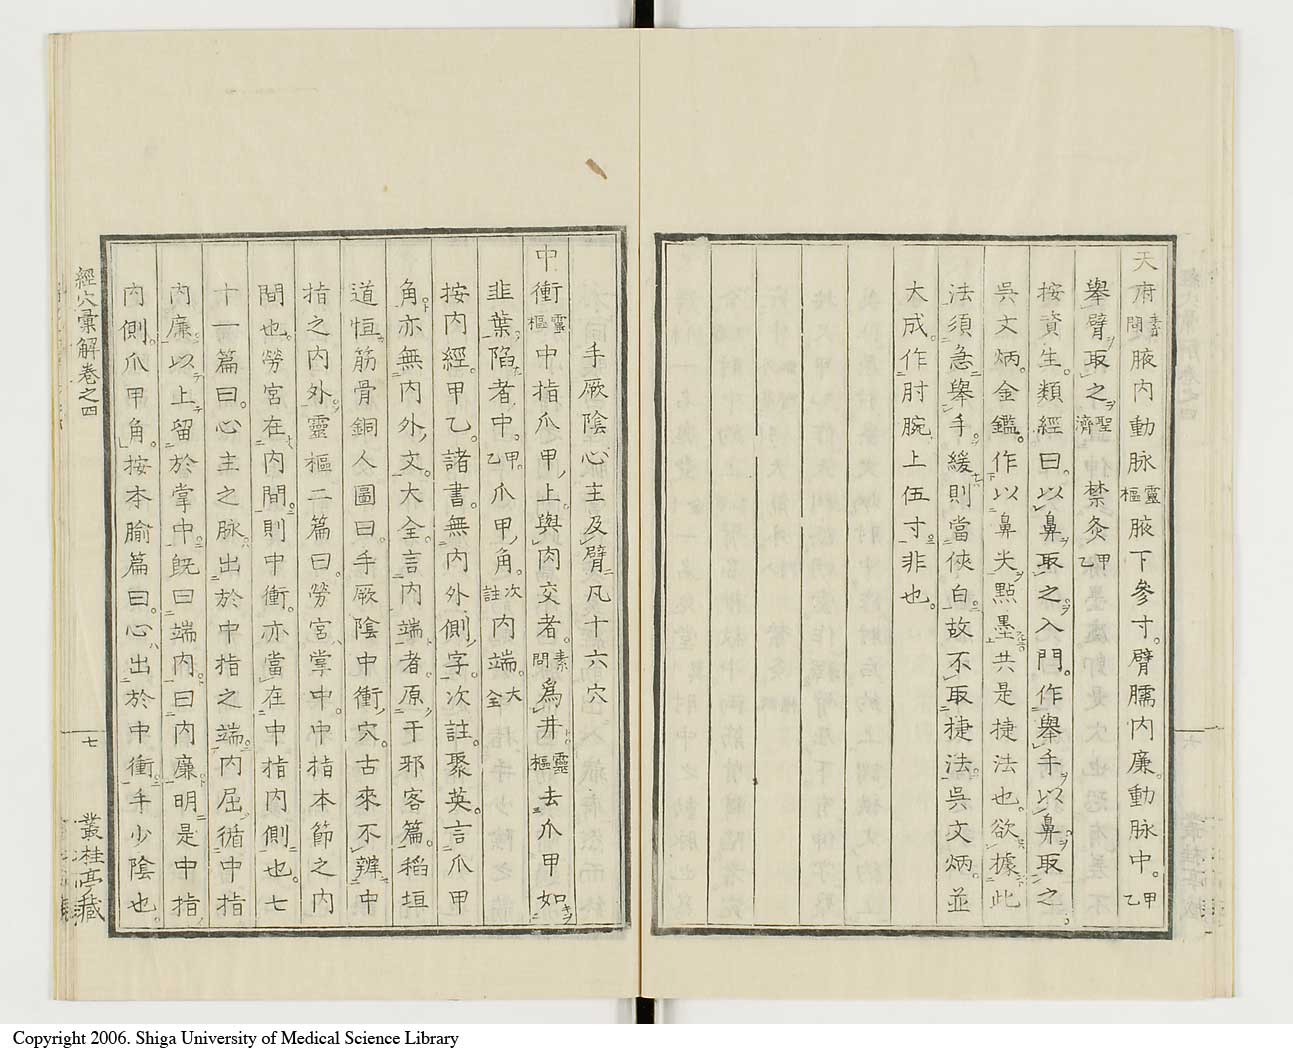 天府素問腋内動脉靈樞腋下參寸臂臑内廉動脉中甲乙
舉臂取之聖濟禁灸甲乙
按資生類經曰以鼻取之入門作舉手以鼻取之
吳文炳金鑑作以鼻尖點墨共是捷法也欲據此
法須急舉手緩則當俠白故不取捷法吳文炳並
大成作肘腕上伍寸非也
手厥陰心主及臂凡十六穴
中衝靈樞中指爪甲上與肉交者素問爲井靈樞去爪甲如
韭葉陷者中甲乙爪甲角次註内端大全
按内經甲乙諸書無内外側字次註聚英言爪甲
角亦無内外文大全言内端者原于邪客篇稻垣
道恒筋骨銅人圖曰手厥陰中衝穴古來不辨中
指之内外靈樞二篇曰勞宮掌中中指本節之内
間也勞宮在内間則中衝亦當在中指内側也七
十一篇曰心主之脉出於中指之端内屈循中指
内廉以上留於掌中旣曰端内曰内廉明是中指
内側爪甲角按本腧篇曰心出於中衝手少陰也
經穴彙解卷之四
七
叢桂亭藏
Copyright 2006. Shiga University of Medical Science Library